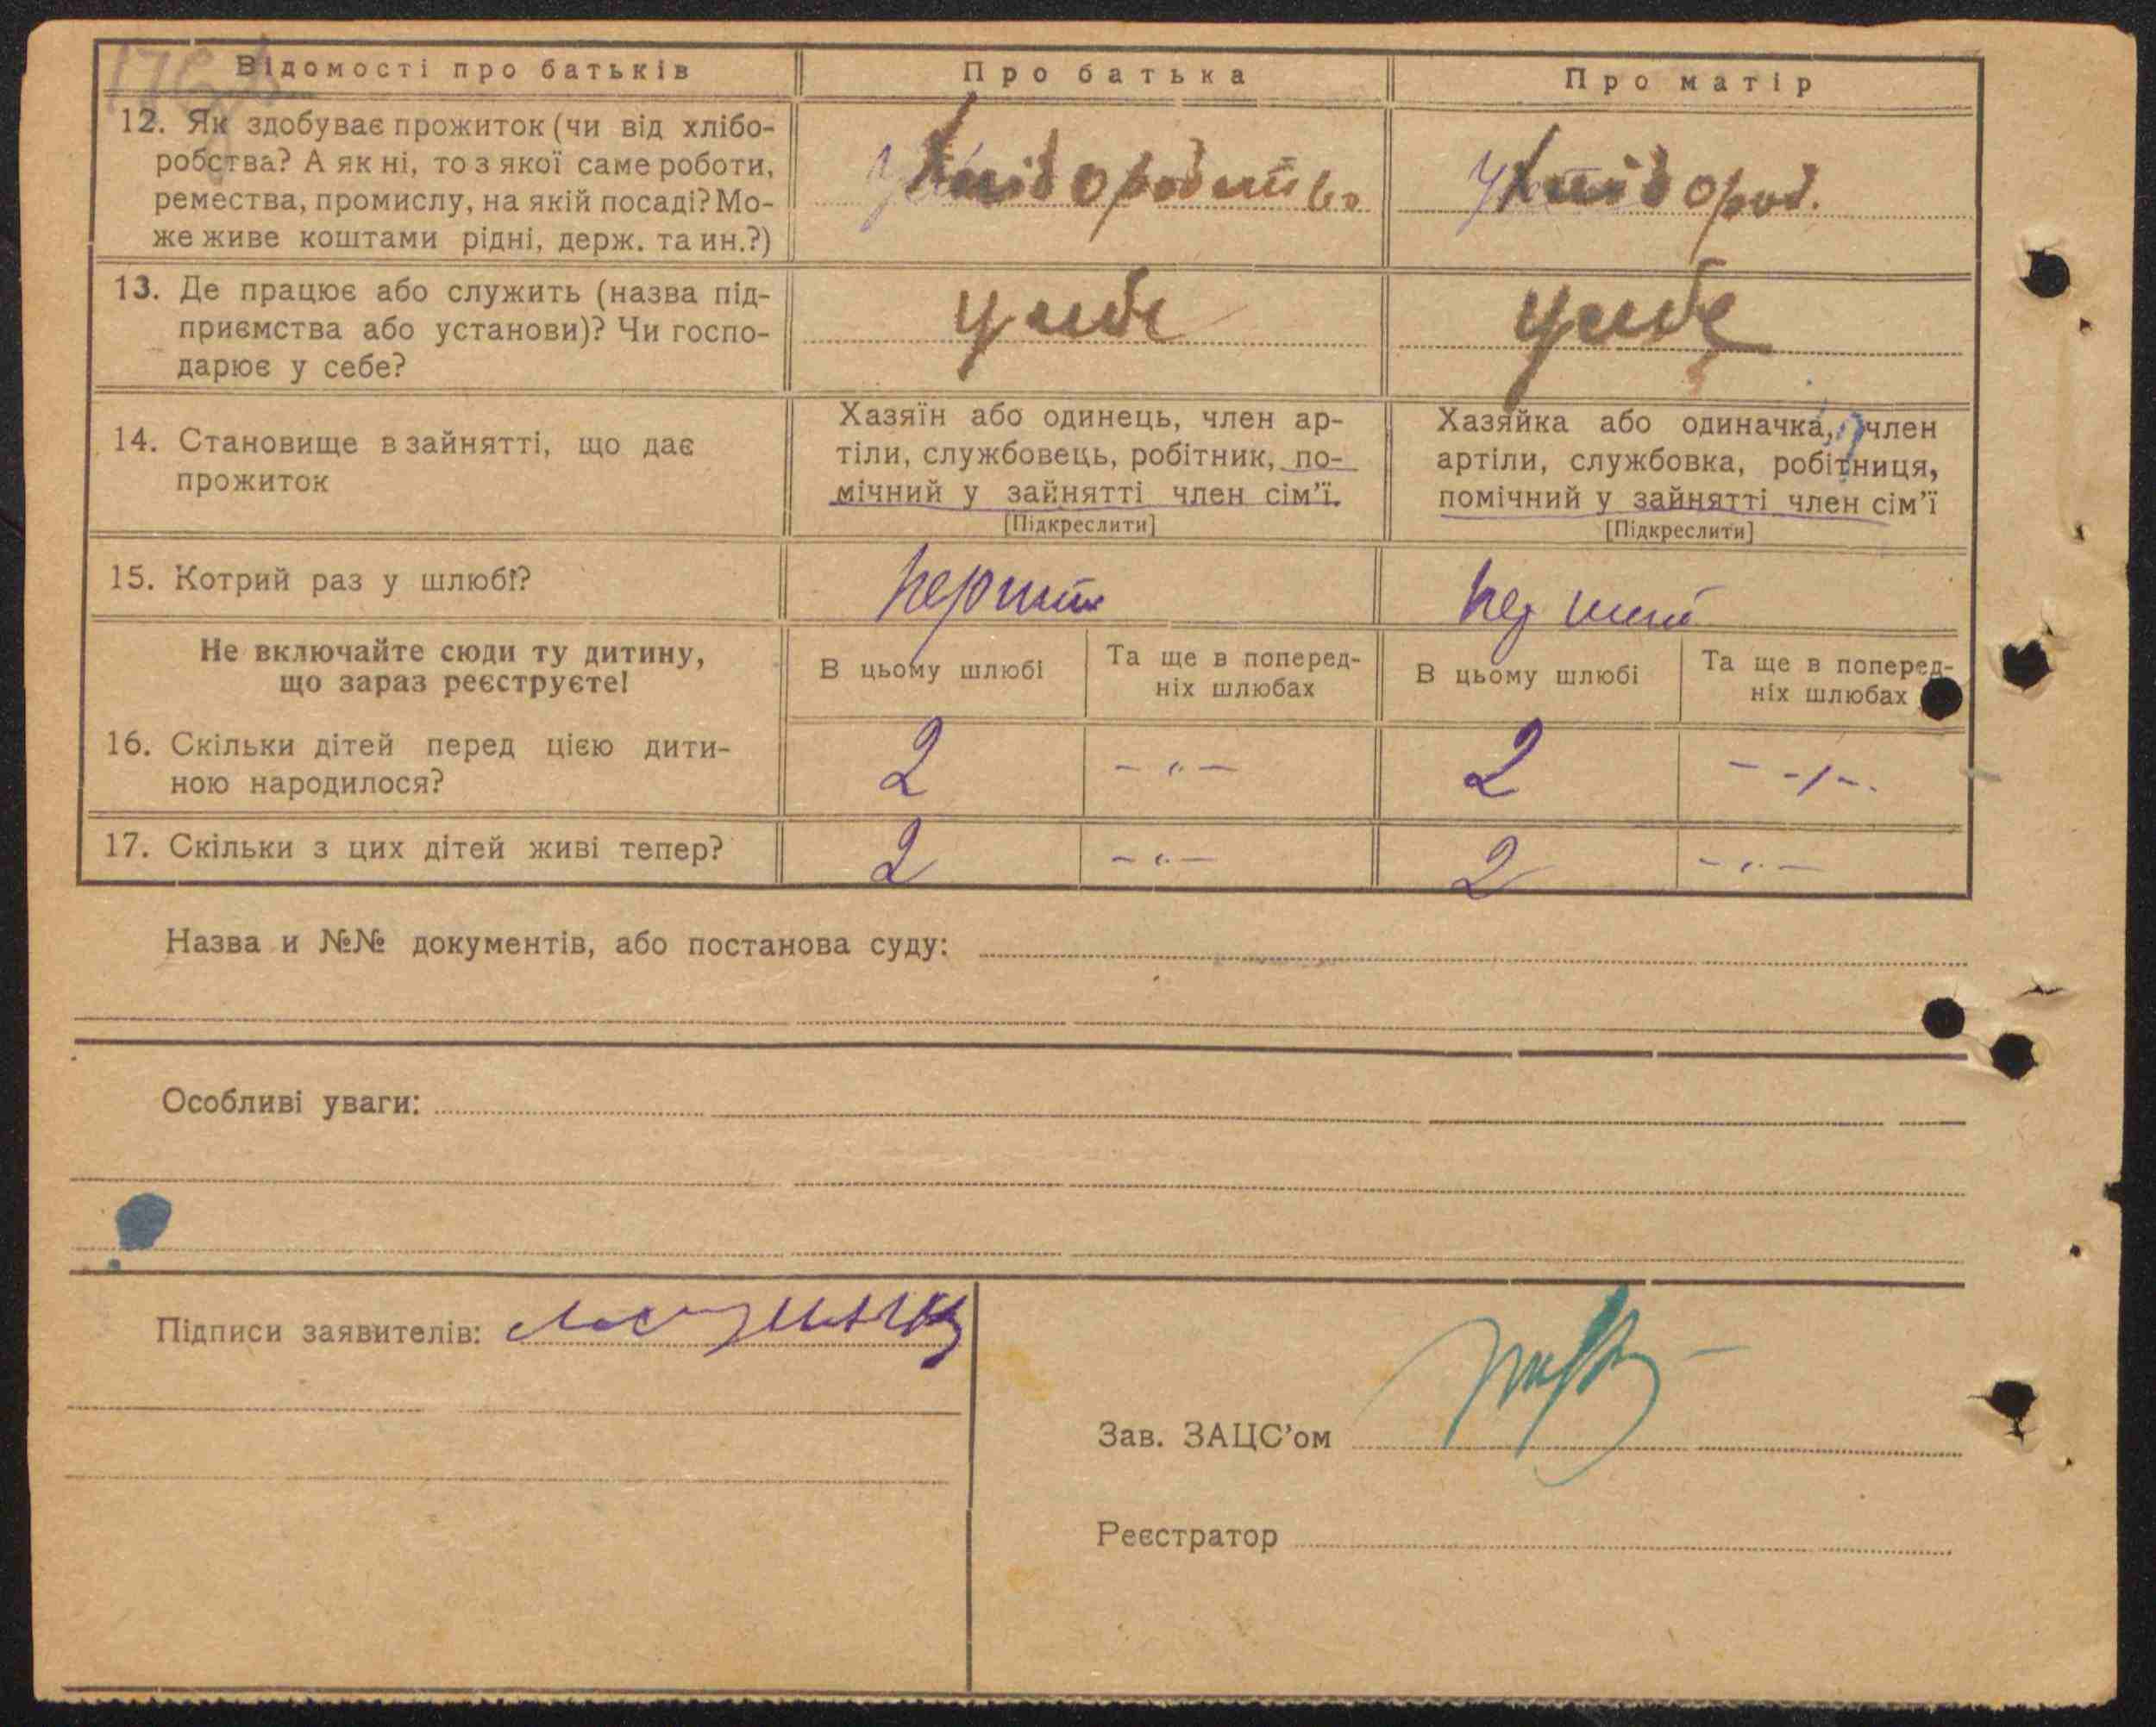 Відомості про батьків
Про батька
Про матір
12. Як здобуває прожиток (чи від хлібо-
робства? А як ні, то з якої саме роботи,
ремества, промислу, на якій посаді? Мо-
же живе коштами рідні, держ. та ин.?)
Хліборобство
Хлібороб.
13. Де працює або служить (назва під-
приємства або установи)? Чи госпо-
дарює у себе?
у себе
у себе
14. Становище в зайнятті, що дає
прожиток
Хазяїн або одинець, член ар-
тіли, службовець, робітник, по-
мічний у зайнятті член сім'ї.
[Підкреслити]
Хазяйка або одиначка, член
артіли, службовка, робітниця,
помічний у зайнятті член сім'ї
[Підкреслити]
15. Котрий раз у шлюбі?
перший
перший
Не включайте сюди ту дитину,
що зараз реєструєте!
В цьому шлюбі
Та ще в поперед-
ніх шлюбах
В цьому шлюбі
Та ще в поперед-
ніх шлюбах
16. Скільки дітей перед цією дити-
ною народилося?
2 - „ -
2 - - / -.
17. Скільки з цих дітей живі тепер?
2 - „ -
2 - „ -
Назва и №№ документів, або постанова суду:
Особливі уваги:
Підписи заявителів:
Зав. ЗАЦС'ом
Реєстратор